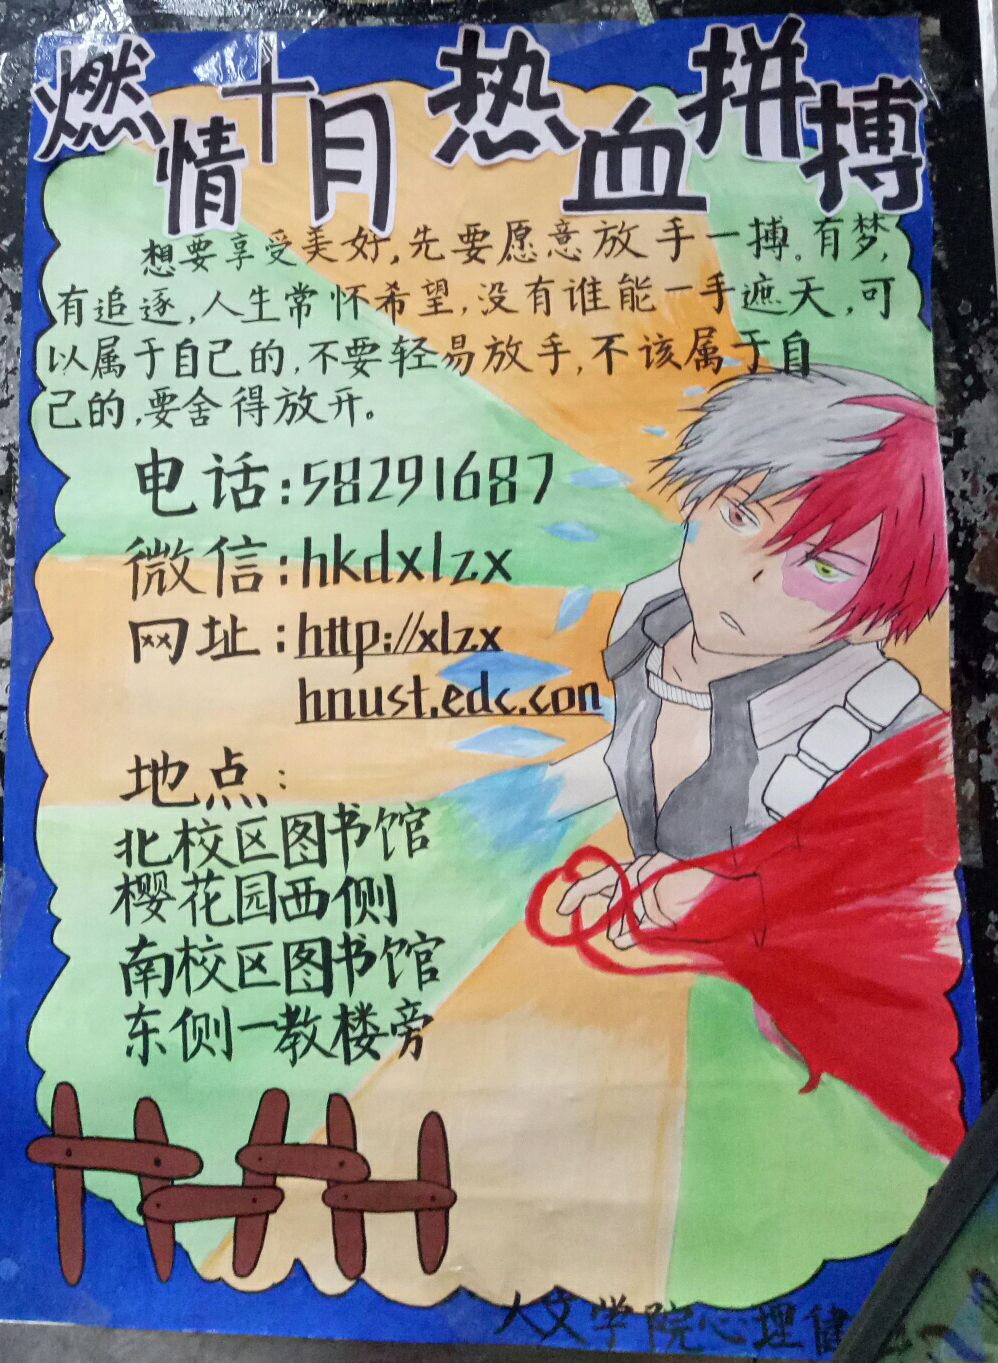 燃情十月热血拼搏
想要享受美好,先要愿意放手一搏。有梦,
有追逐,人生常怀希望,没有谁能一手遮天,可
以属于自己的,不要轻易放手,不该属于自
己的,要舍得放开。
电话:58291687
微信:hkdxlzx
网址:http://xlzx
hnust.edc.con
地点:
北校区图书馆
樱花园西侧
南校区图书馆
东侧一教楼旁
人文学院心理健